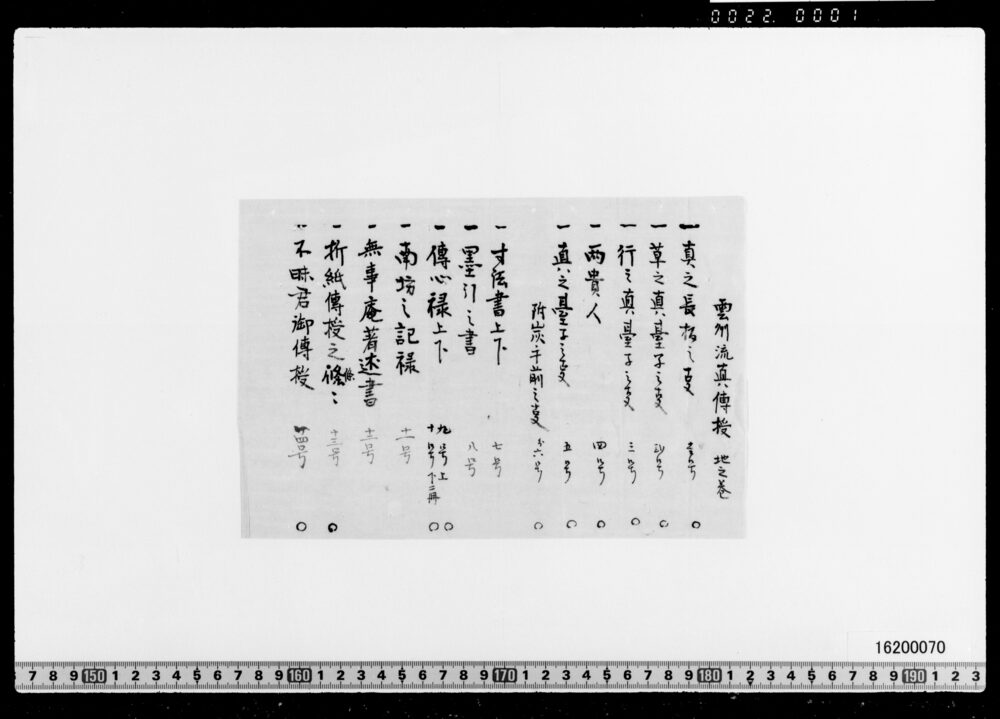 0022. 0001
雲州流真傳授 地之巻
一 真之長板之支 壱号 〇
一 草之真臺子之支 弐号 〇
一 行之真臺子之支 三号 〇
一 両貴人 四号 〇
一 真之臺子之支 五号 〇
附炭手前之支 六号 〇
一 寸法書上下 七号
一 墨引之書 八号
一 傳心禄上下 九号上 十号下二冊 〇〇
一 南坊之記禄 十一号
一 無事庵著述書 十二号
一 折紙傳授之條々 十三号 〇
一 不昧君御傳授 十四号 〇
16200070
7 8 9 150 1 2 3 4 5 6 7 8 9 160 1 2 3 4 5 6 7 8 9 170 1 2 3 4 5 6 7 8 9 180 1 2 3 4 5 6 7 8 9 190 1 2 3